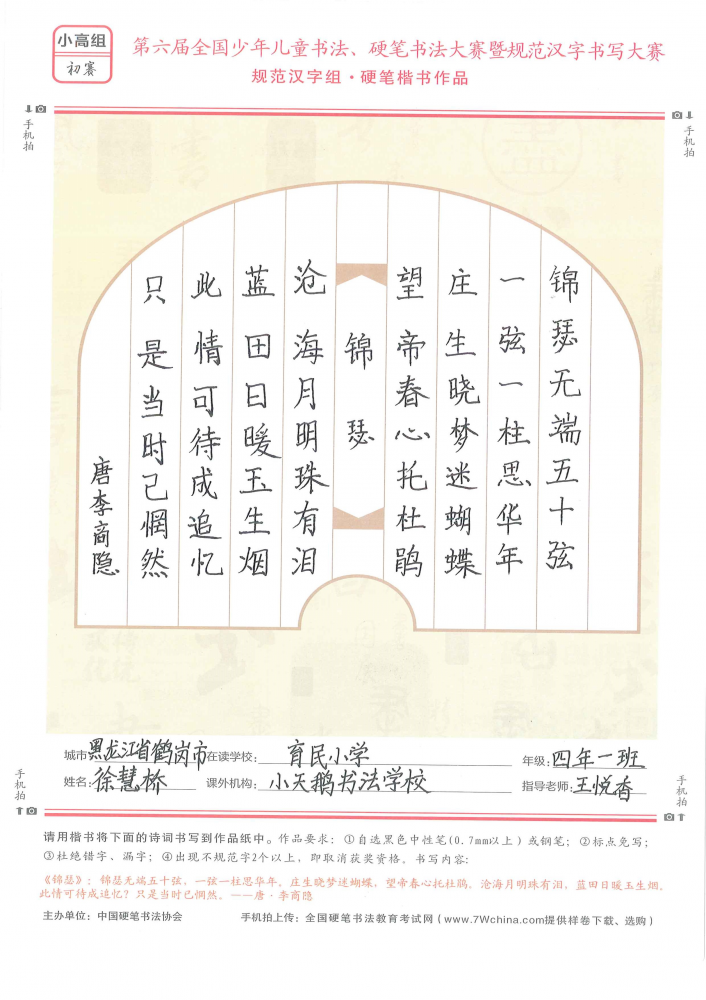 小高组
初赛
第六届全国少年儿童书法、硬笔书法大赛暨规范汉字书写大赛
规范汉字组·硬笔楷书作品
手机拍
手机拍
锦瑟无端五十弦
一弦一柱思华年
庄生晓梦迷蝴蝶
望帝春心托杜鹃
锦瑟
沧海月明珠有泪
蓝田日暖玉生烟
此情可待成追忆
只是当时已惘然
唐李商隐
城市:黑龙江省鹤岗市 在读学校:育民小学 年级:四年一班
姓名:徐慧桥 课外机构:小天鹅书法学校 指导老师:王悦香
手机拍
手机拍
请用楷书将下面的诗词书写到作品纸中。作品要求：①自选黑色中性笔(0.7mm以上)或钢笔；②标点免写；
③杜绝错字、漏字；④出现不规范字2个以上，即取消获奖资格。书写内容:
《锦瑟》：锦瑟无端五十弦，一弦一柱思华年。庄生晓梦迷蝴蝶，望帝春心托杜鹃。沧海月明珠有泪，蓝田日暖玉生烟。
此情可待成追忆？只是当时已惘然。——唐·李商隐
主办单位：中国硬笔书法协会 手机拍上传：全国硬笔书法教育考试网（www.7Wchina.com提供样卷下载、选购）